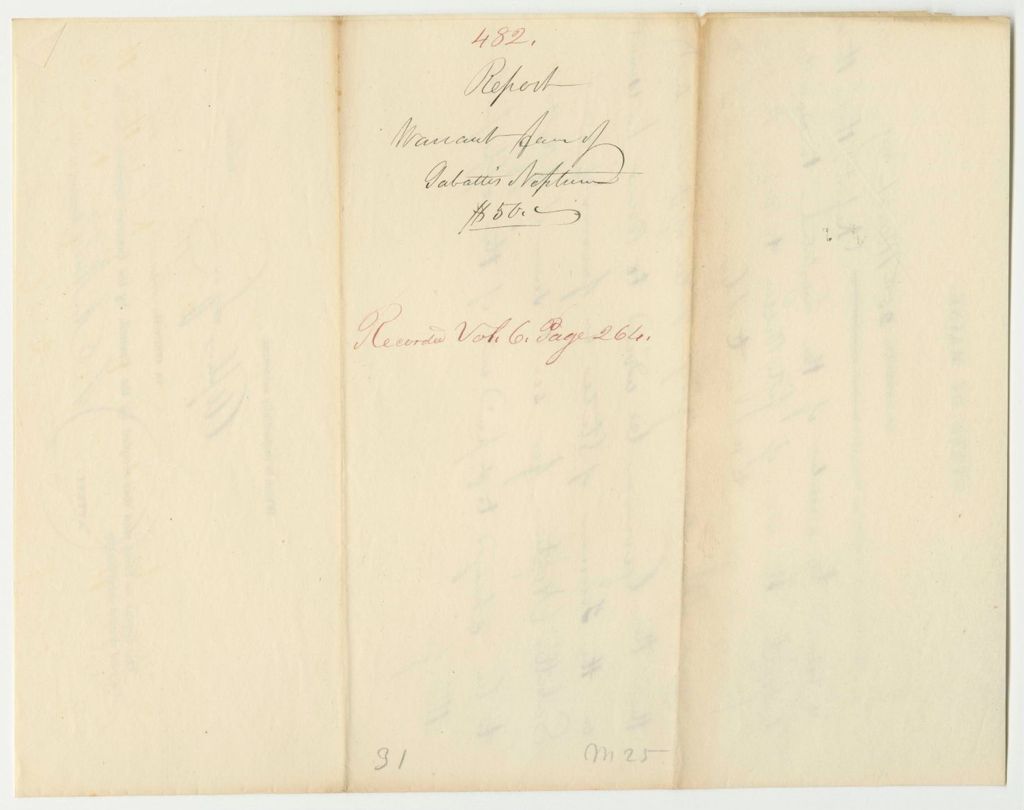 482.
Report
Warrant favr of
Sabattis Neptune
$50.
Recorded Vol. 6. Page 264.
31
M 25